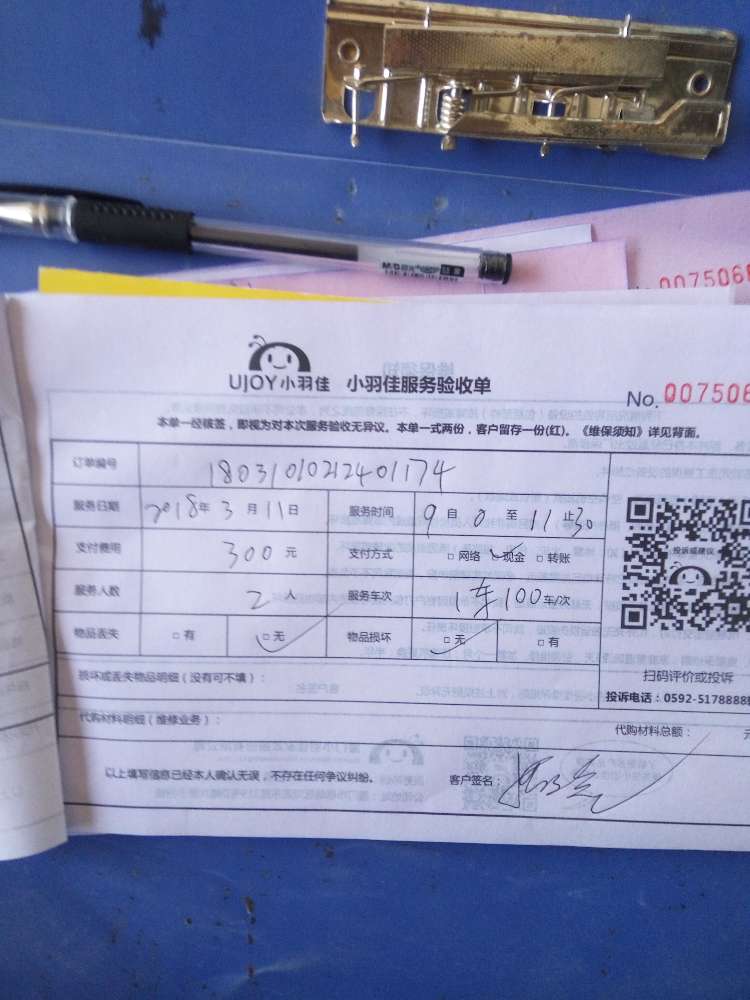 007506
UJOY小羽佳 小羽佳服务验收单
No. 007506
本单一经核签，即视为对本次服务验收无异议。本单一式两份，客户留存一份(红)。《维保须知》详见背面。
订单编号 18031010212401174
服务日期 2018年 3月 11日 服务时间 9自 0 至 11止30
支付费用 300 元 支付方式 □网络 □现金 □转账
服务人数 2 人 服务车次 1车100车/次
物品丢失 □有 □无 物品损坏 □无 □有
投诉或建议
扫码评价或投诉
损坏或丢失物品明细（没有可不填）：
投诉电话：0592-5178888
代购材料明细（维修业务）： 代购材料总额：
以上填写信息已经本人确认无误，不存在任何争议纠纷。 客户签名：